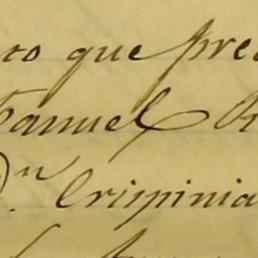 to que pre
Manuel R
Dn. Crispinia